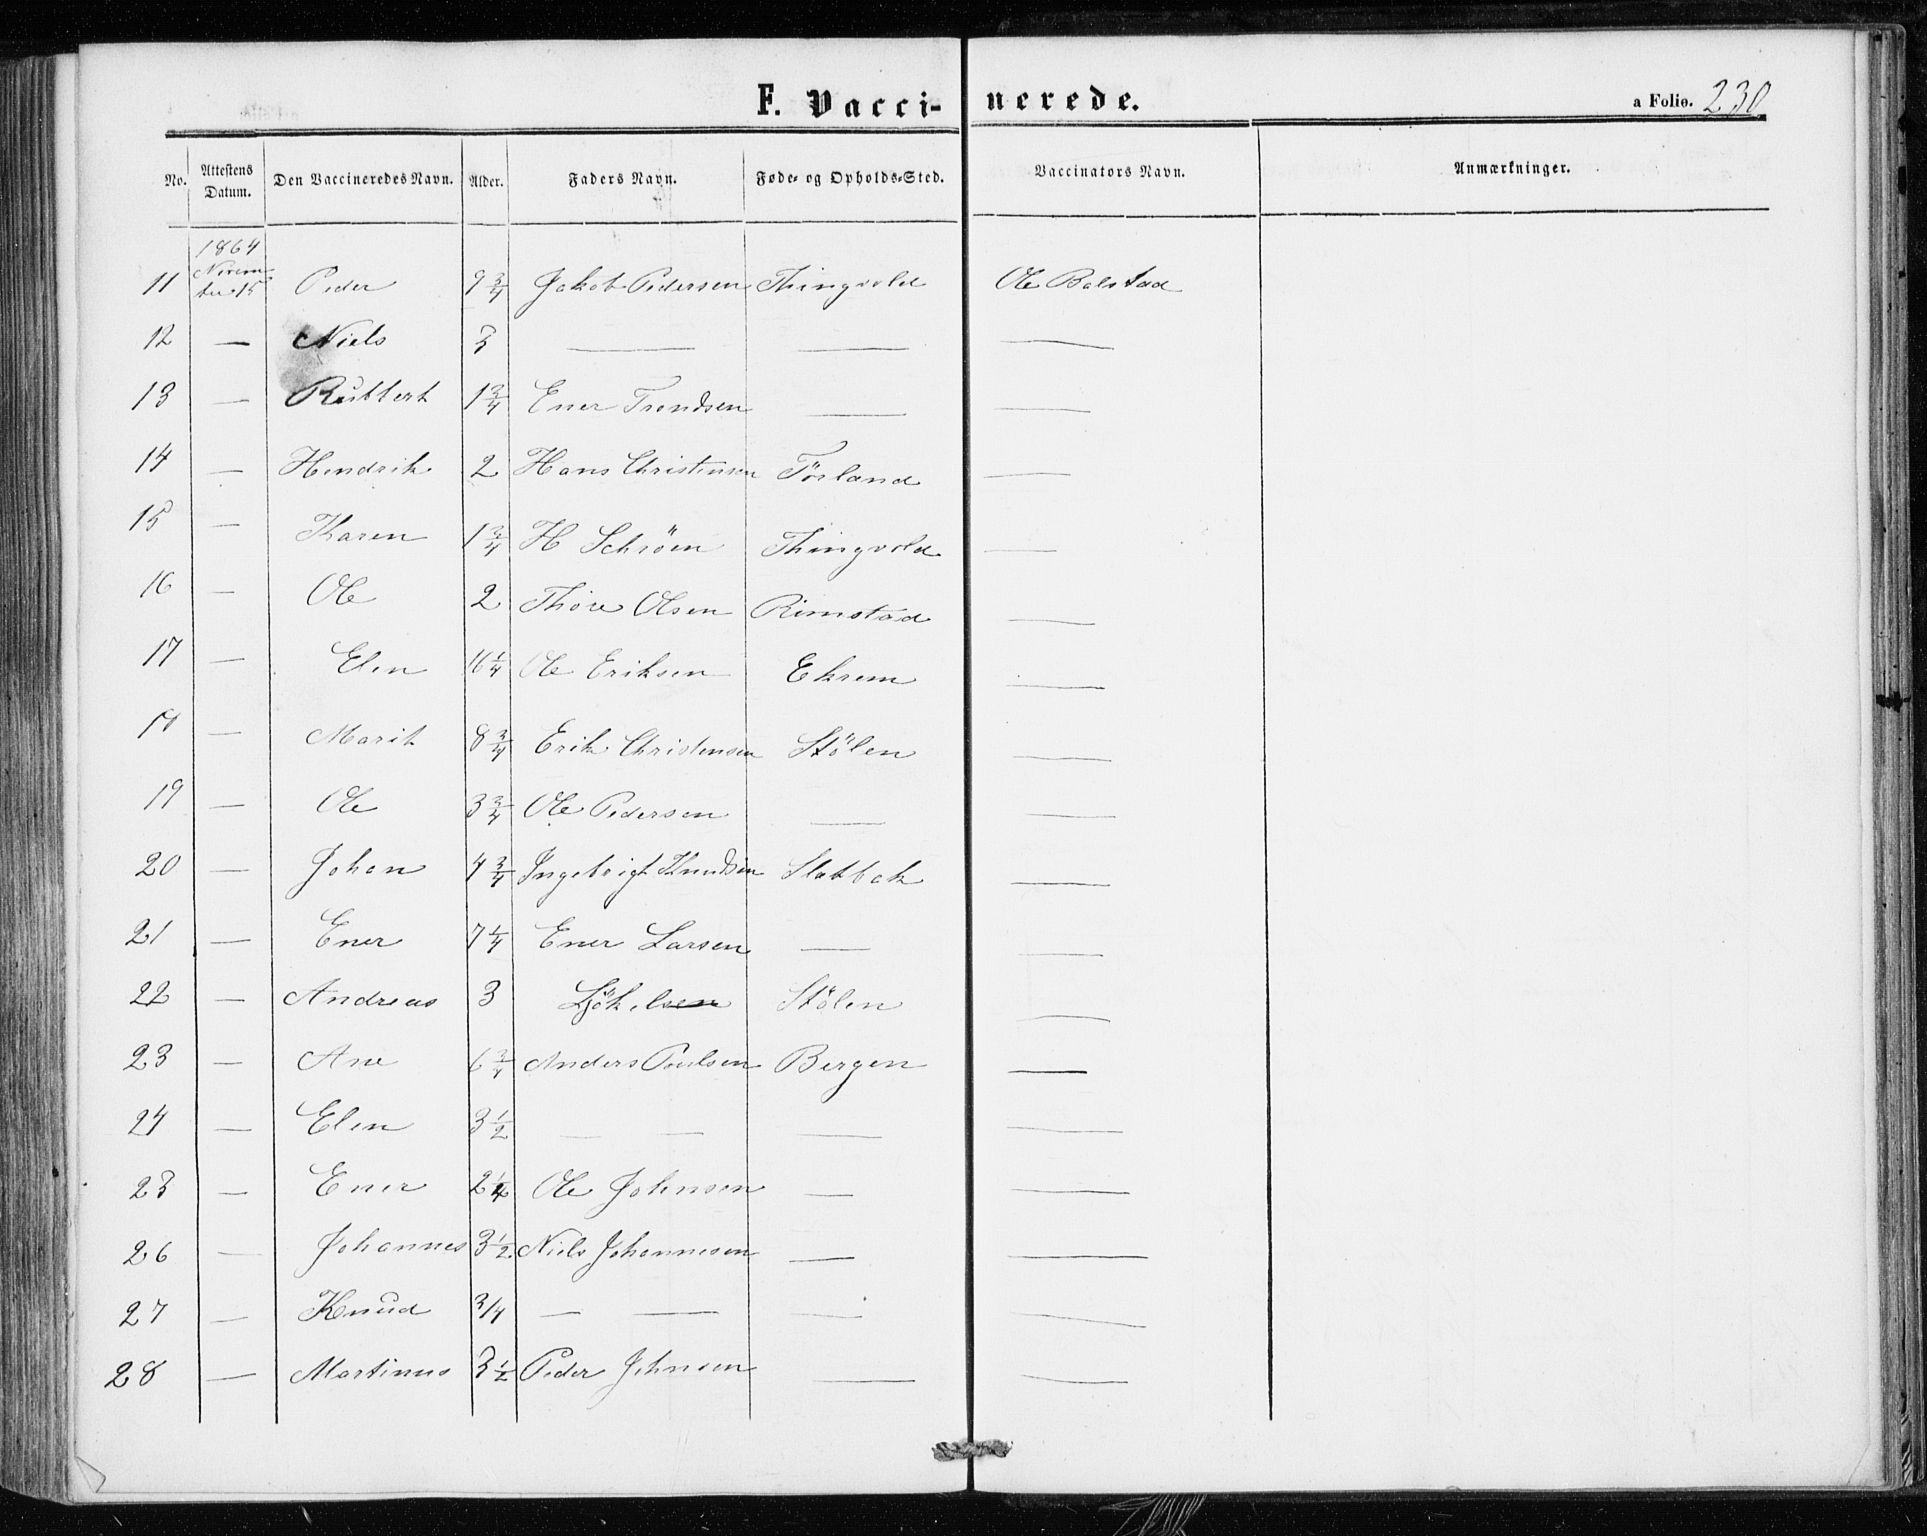 F. Vacci-nerede.
a Folio. 230
No. | Attestens Datum. | Den Vaccineredes Navn. | Alder. | Faders Navn. | Føde- og Opholds-Sted. | Vaccinators Navn. | Anmærkninger.
1864
11 | Novem ber 15 | Peder | 9 3/4 | Jakob Pedersen | Thingvold | Ole Bolstad
12 | — | Niels | 3 | — | — | —
13 | — | Rubbert | 1 3/4 | Ener Trondsen | — | —
14 | — | Hendrik | 2 | Hans Christensen | Törland | —
15 | — | Karen | 1 3/4 | H Schröen | Thingvold | —
16 | — | Ole | 2 | Thöre Olsen | Rimstad | —
17 | — | Elen | 16 1/4 | Ole Eriksen | Ekrem | —
18 | — | Marit | 8 3/4 | Erik Christensen | Stölen | —
19 | — | Ole | 3 3/4 | Ole Pedersen | — | —
20 | — | Johan | 4 3/4 | Ingebrigt Knudsen | Slatbak | —
21 | — | Ener | 7 1/4 | Ener Larsen | — | —
22 | — | Andreas | 3 | | Stölen | —
23 | — | Ane | 6 3/4 | Anders Poulsen | Bergen | —
24 | — | Elen | 3 1/2 | — — | — | —
25 | — | Ener | 2 1/4 | Ole Johnsen | — | —
26 | — | Johannes | 3 1/2 | Niels Johannesen | — | —
27 | — | Knud | 3/4 | — — | — | —
28 | — | Martinus | 3 1/2 | Peder Johnsen | — | —